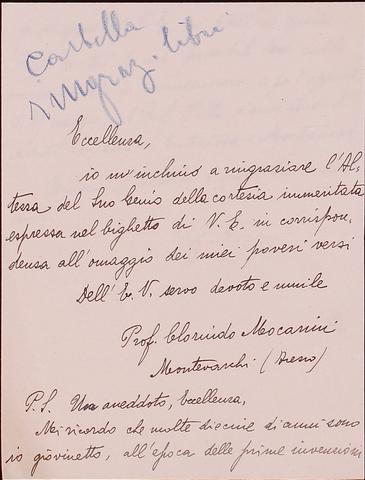 Cartella
ringraz. libri
Eccellenza,
io m'inchino a ringraziare l'Al-
tezza del Suo Genio della cortesia immeritata
espressa nel biglietto di V. E. in corrispon-
denza all'omaggio dei miei poveri versi
Dell'E. V. servo devoto e umile
Prof. Clorindo
Montevarchi (Arezzo)
P.S. Un aneddoto, Eccellenza,
Mi ricordo che molte diecine di anni sono
io giovinetto, all'epoca delle prime invenzioni